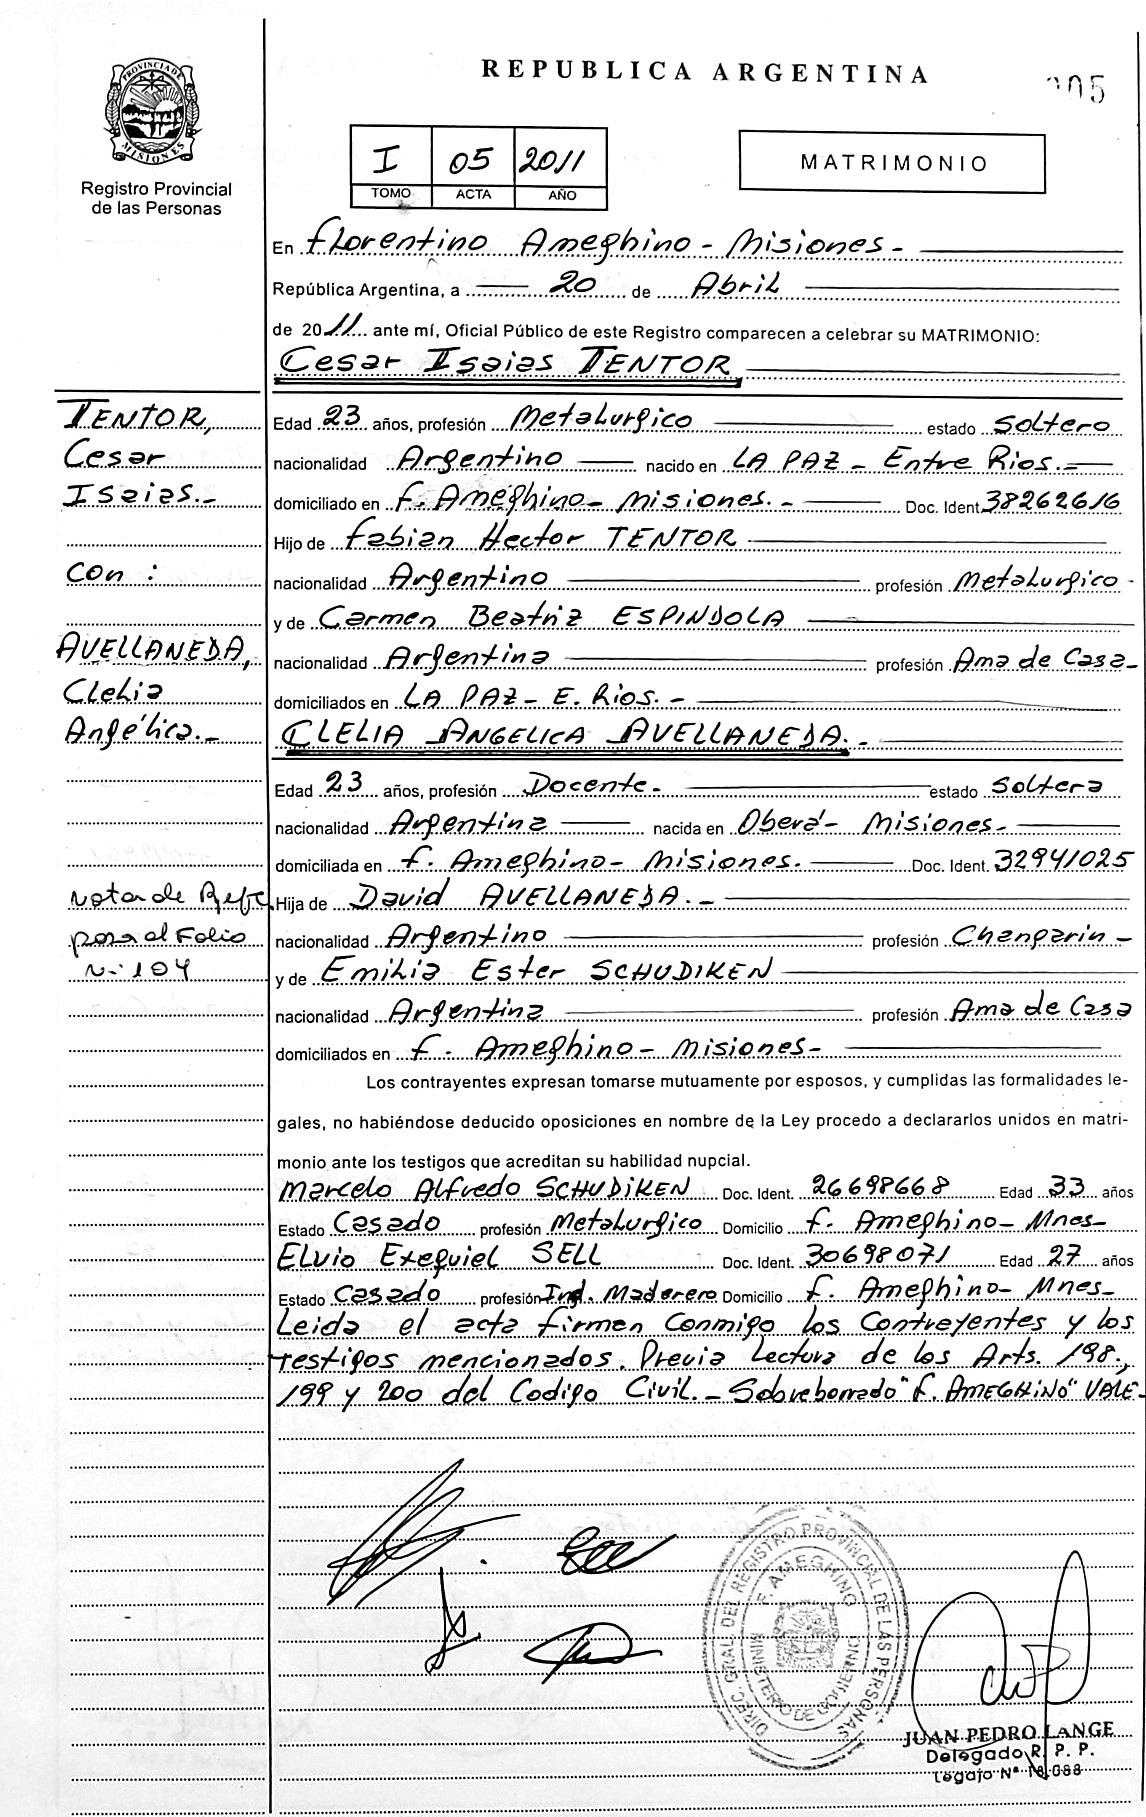 REPUBLICA ARGENTINA
005
PROVINCIA DE MISIONES
Registro Provincial
de las Personas
I 05 2011
TOMO ACTA AÑO
MATRIMONIO
En Florentino Ameghino - Misiones -
República Argentina, a 20 de Abril
de 2011 ante mí, Oficial Público de este Registro comparecen a celebrar su MATRIMONIO:
Cesar Isaias TENTOR
TENTOR,
Cesar
Isaias.-
con :
AVELLANEDA,
Clelia
Angélica.-
Edad 23 años, profesión Metalurgico estado Soltero
nacionalidad Argentino nacido en LA PAZ - Entre Rios.-
domiciliado en F. Ameghino - Misiones. - Doc. Ident. 38262616
Hijo de Fabian Hector TENTOR
nacionalidad Argentino profesión Metalurgico -
y de Carmen Beatriz ESPINDOLA
nacionalidad Argentina profesión Ama de Casa -
domiciliados en LA PAZ - E. Rios. -
CLELIA ANGELICA AVELLANEDA. -
Edad 23 años, profesión Docente - estado Soltera
nacionalidad Argentina nacida en Oberá - Misiones -
domiciliada en F. Ameghino - Misiones. Doc. Ident. 32941025
Nota de Refe
pasa al Folio
N-: 104
Hija de David AVELLANEDA. -
nacionalidad Argentino profesión Changarin -
y de Emilia Ester SCHUDIKEN
nacionalidad Argentina profesión Ama de Casa
domiciliados en F. Ameghino - Misiones -
Los contrayentes expresan tomarse mutuamente por esposos, y cumplidas las formalidades le-
gales, no habiéndose deducido oposiciones en nombre de la Ley procedo a declararlos unidos en matri-
monio ante los testigos que acreditan su habilidad nupcial.
Marcelo Alfredo SCHUDIKEN Doc. Ident. 26698668 Edad 33 años
Estado Casado profesión Metalurgico Domicilio F. Ameghino - Mnes -
ELvio Exequiel SELL Doc. Ident. 30698071 Edad 27 años
Estado Casado profesión Ind. Maderero Domicilio F. Ameghino - Mnes -
Leida el acta firman Conmigo los Contrayentes y los
testigos mencionados. Previa Lectura de los Arts. 198.,
199 y 200 del Codigo Civil. - Sobreborrado "F. AMEGHINO" VALE -
DIREC. GRAL. DEL REGISTRO PROVINCIAL DE LAS PERSONAS
F. AMEGHINO
MINISTERIO DE GOBIERNO
JUAN PEDRO LANGE
Delegado R. P. P.
Legajo Nº 18.088